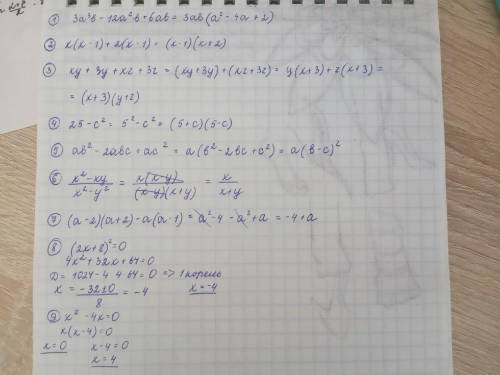 ① 3a³b - 12a²b + 6ab = 3ab(a² - 4a + 2)
② x(x-1) + 2(x-1) = (x-1)(x+2)
③ xy + 3y + xz + 3z = (xy+3y) + (xz+3z) = y(x+3) + z(x+3) =
= (x+3)(y+z)
④ 25 - c² = 5² - c² = (5+c)(5-c)
⑤ ab² - 2abc + ac² = a(b² - 2bc + c²) = a(b-c)²
⑥ x²-xy/x²-y² = x(x-y)/(x-y)(x+y) = x/x+y
⑦ (a-2)(a+2) - a(a-1) = a² - 4 - a² + a = -4 + a
⑧ (2x+8)² = 0
4x² + 32x + 64 = 0
D = 1024 - 4·4·64 = 0 => 1 корень
x = -32±0/8 = -4 x = -4
⑨ x² - 4x = 0
x(x-4) = 0
x = 0 x-4 = 0
x = 4